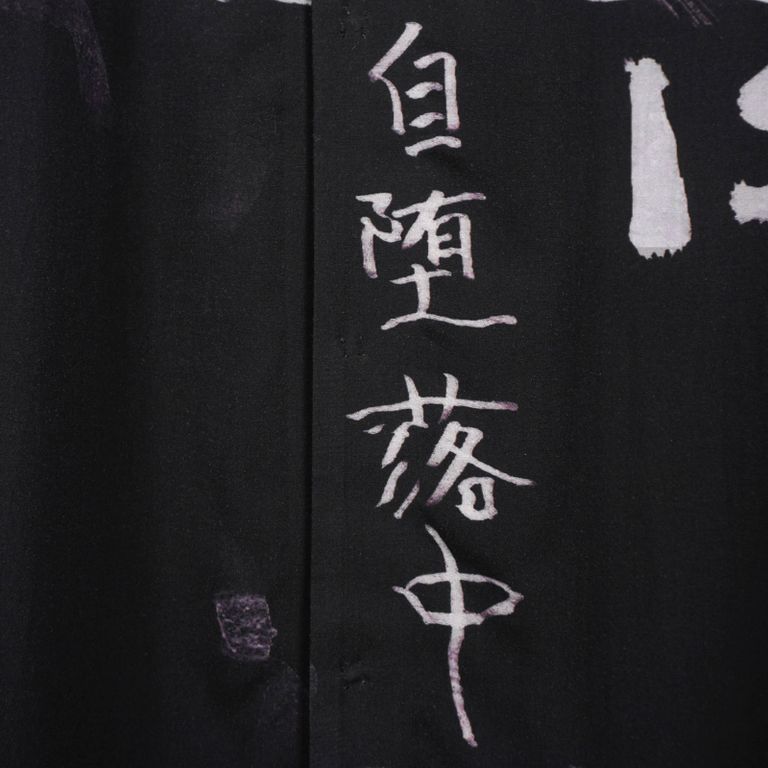 自堕落中